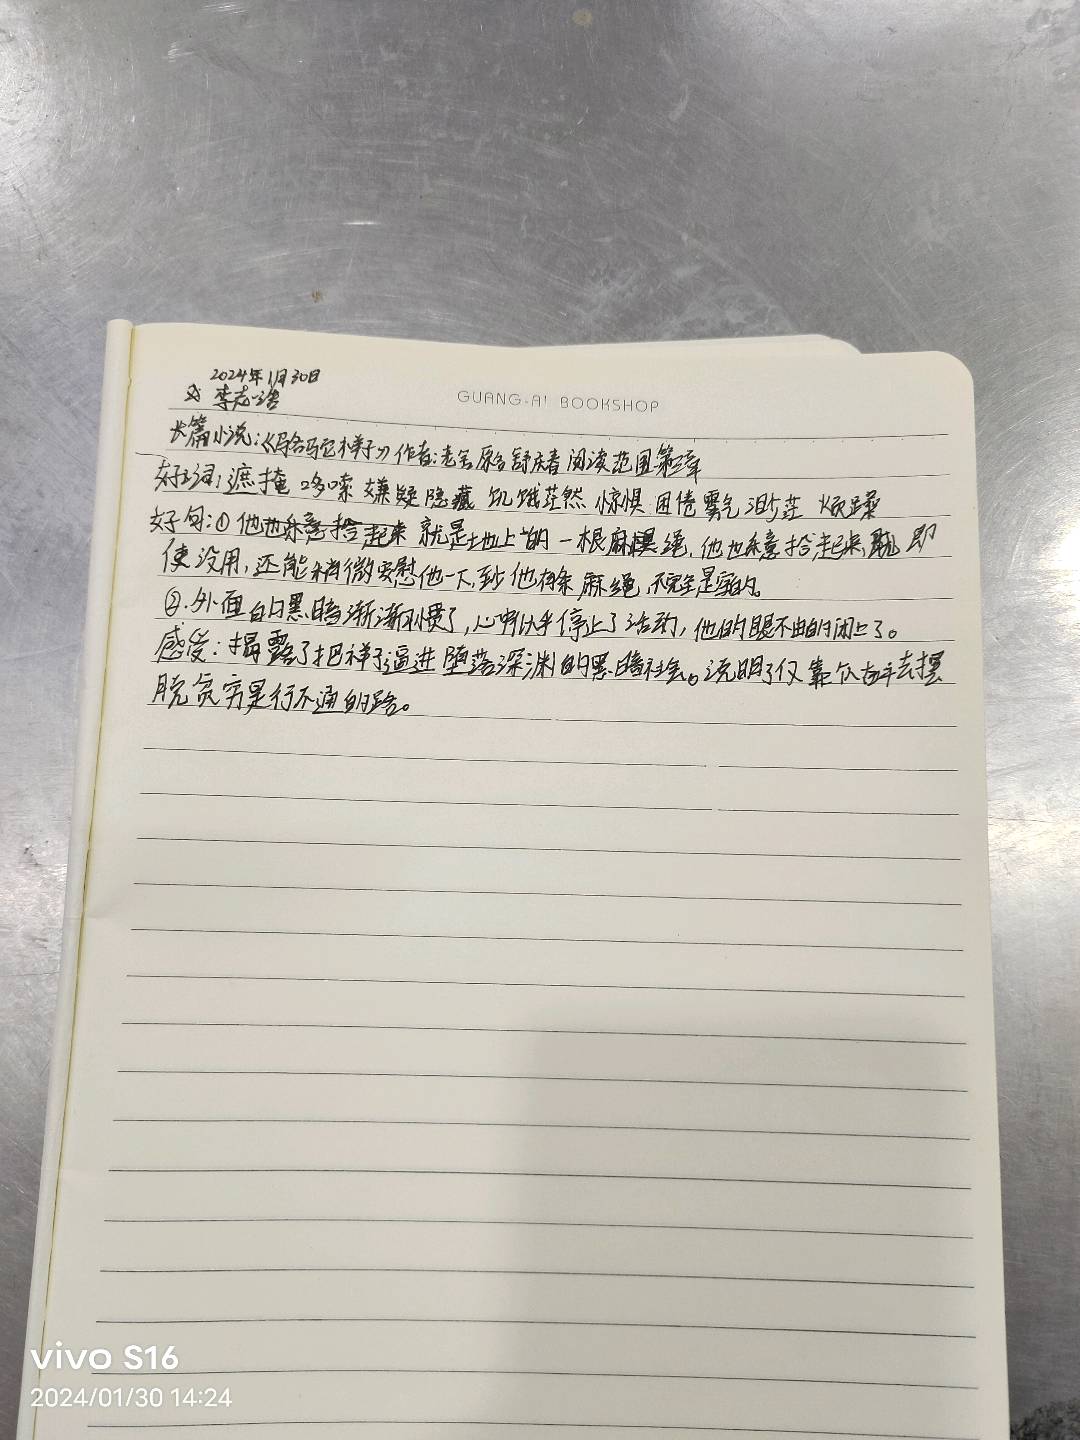 2024年1月30日
李志浩
GUANG-AI BOOKSHOP
长篇小说:《骆驼祥子》作者:老舍 原名 舒庆春 阅读范围 第三章
好词:遮掩 哆嗦 嫌疑 隐藏 饥饿 茫然 惊惧 困倦 雾气 渺茫 烦躁
好句:① 就是地上的一根麻绳,他也乐意拾起来,即
使没用,还能稍微安慰他一下,至少他有条麻绳,不完全是空的。
②.外面的黑暗渐渐习惯了,心中似乎停止了活动,他的眼不由的闭上了。
感受:揭露了把祥子逼进堕落深渊的黑暗社会。说明了仅靠个去摆
脱贫穷是行不通的路。
vivo S16
2024/01/30 14:24